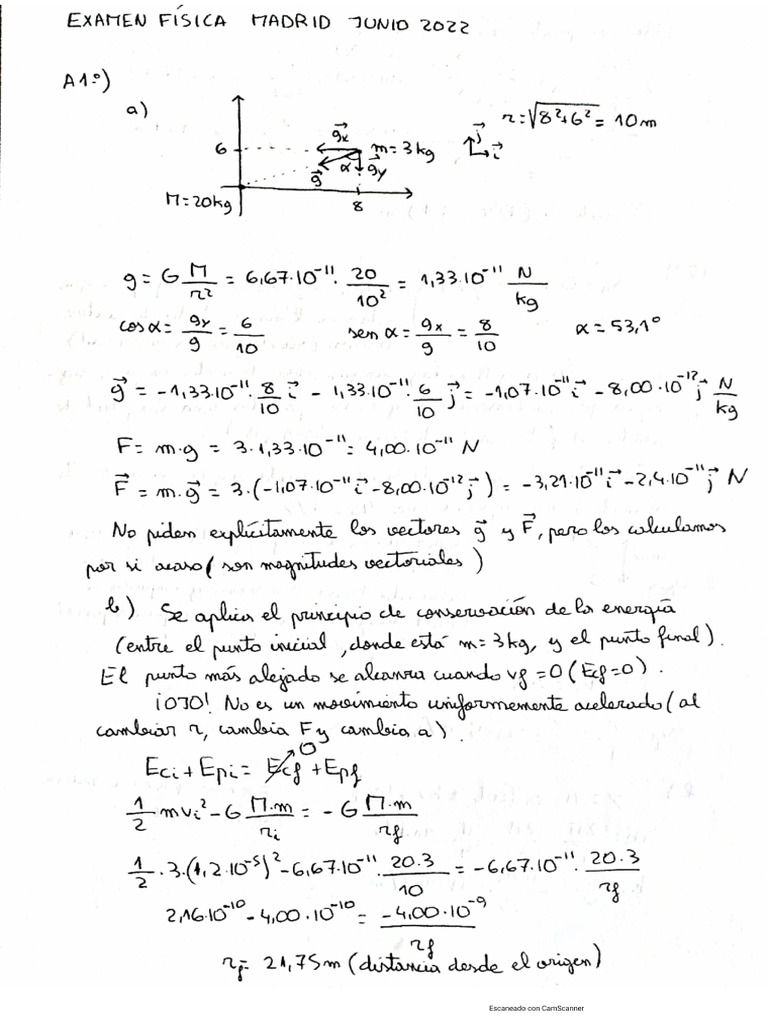 EXAMEN FÍSICA MADRID JUNIO 2022
A1º)
a)
r=√8²+6² = 10m
j
i
g⃗x
6
m=3kg
α
g⃗y
g⃗
M=20kg
8
g = G M/r² = 6,67·10⁻¹¹ · 20/10² = 1,33·10⁻¹¹ N/kg
cos α = gy/g = 6/10 sen α = gx/g = 8/10 α = 53,1º
g⃗ = -1,33·10⁻¹¹ · 8/10 i⃗ - 1,33·10⁻¹¹ · 6/10 j⃗ = -1,07·10⁻¹¹ i⃗ - 8,00·10⁻¹² j⃗ N/kg
F = m·g = 3·1,33·10⁻¹¹ = 4,00·10⁻¹¹ N
F⃗ = m·g⃗ = 3·(-1,07·10⁻¹¹ i⃗ - 8,00·10⁻¹² j⃗) = -3,21·10⁻¹¹ i⃗ - 2,4·10⁻¹¹ j⃗ N
No piden explícitamente los vectores g⃗ y F⃗, pero los calculamos
por si acaso (son magnitudes vectoriales)
b) Se aplica el principio de conservación de la energía
(entre el punto inicial, donde está m=3kg, y el punto final).
El punto más alejado se alcanza cuando vf=0 (Ecf=0).
¡OJO! No es un movimiento uniformemente acelerado (al
cambiar r, cambia F y cambia a).
Eci + Epi = Ecf + Epf
0
1/2 mvi² - G M·m/ri = -G M·m/rf
1/2 · 3·(1,2·10⁻⁵)² - 6,67·10⁻¹¹ · 20·3/10 = -6,67·10⁻¹¹ · 20·3/rf
2,16·10⁻¹⁰ - 4,00·10⁻¹⁰ = -4,00·10⁻⁹/rf
rf = 21,75m (distancia desde el origen)
Escaneado con CamScanner